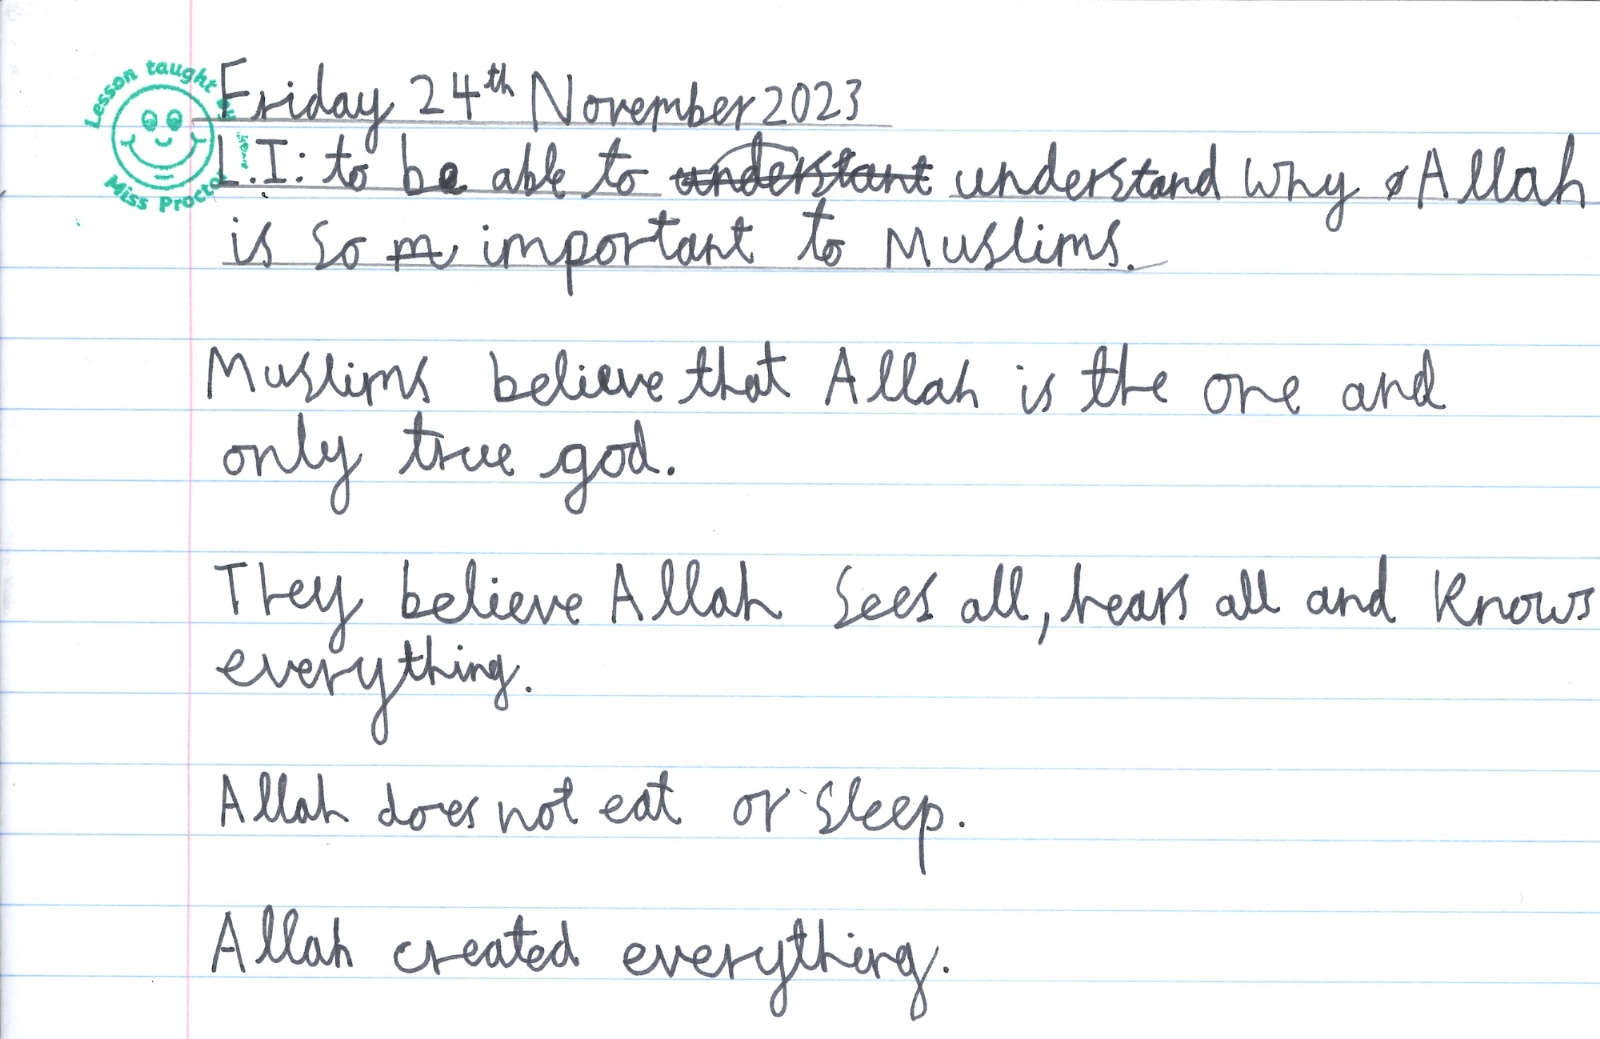 Lesson taught by
Miss Proctor
Friday 24th November 2023
L.I: to be able to understant understand why Allah
is so m important to Muslims.
Muslims believe that Allah is the one and
only true god.
They believe Allah sees all, hears all and knows
everything.
Allah does not eat or sleep.
Allah created everything.